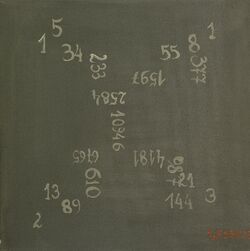 5
1
34
233
55
8
1
377
1597
2584
10946
6765
610
4181
987
21
13
89
144
3
2